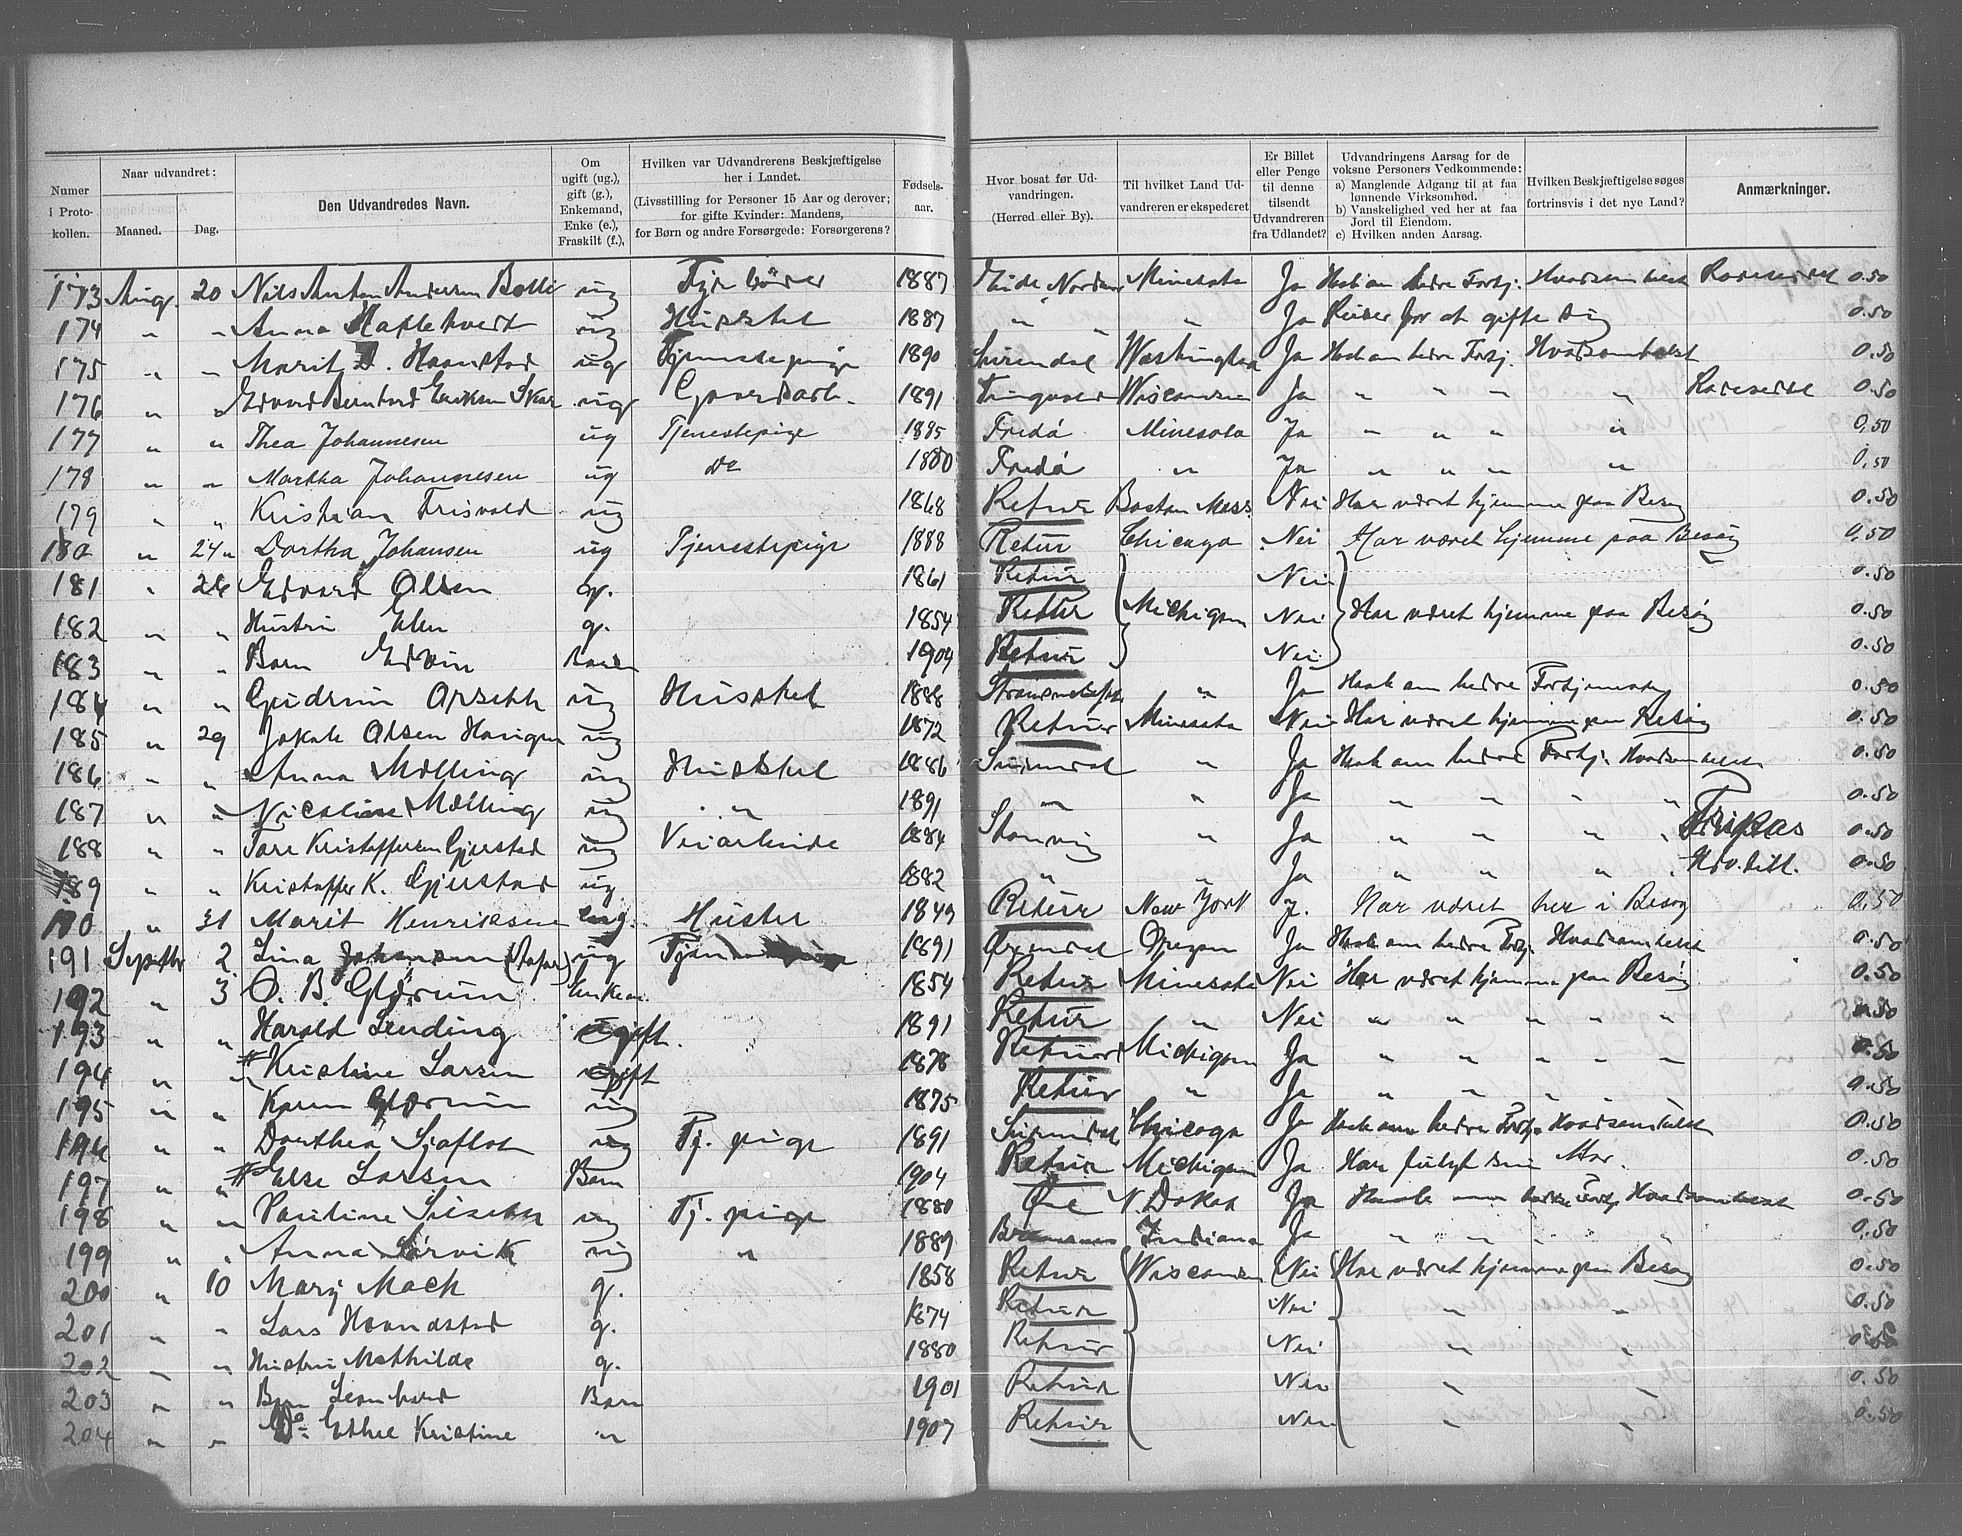 Numer i Protokollen.
Naar udvandret:
Maaned.
Dag.
Den Udvandredes Navn.
Om ugift (ug.), gift (g.), Enkemand, Enke (e.), Fraskilt (f.),
Hvilken var Udvandrerens Beskjæftigelse her i Landet.
(Livsstilling for Personer 15 Aar og derover; for gifte Kvinder: Mandens, for Børn og andre Forsørgede: Forsørgerens?
Fødselsaar.
Hvor bosat før Udvandringen.
(Herred eller By).
Til hvilket Land Udvandreren er ekspederet
Er Billet eller Penge til denne tilsendt Udvandreren fra Udlandet?
Udvandringens Aarsag for de voksne Personers Vedkommende:
a) Manglende Adgang til at faa lønnende Virksomhed.
b) Vanskelighed ved her at faa Jord til Eiendom.
c) Hvilken anden Aarsag.
Hvilken Beskjæftigelse søges fortrinsvis i det nye Land?
Anmærkninger.
173 Aug. 20 Nils Anton Andersen ug Fyrbøder 1887 Eide Minesota Ja Haab om bedre Fortj. Hvadsomhelst 0.50
174 " " Anna ug Husstel 1887 " " " Ja Reiser for at gifte sig 0.50
175 " " Marit ug Tjenestepige 1890 Surendal Washington Ja Haab om bedre Fortj. Hvadsomhelst 0.50
176 " " Edvard Bernhard Eriksen Skar ug Gaardsarb. 1891 Tingvold Wisconsin Ja " " " " 0.50
177 " " Thea Johannesen ug Tjenestepige 1885 Fredø Minesota Ja " " " " 0.50
178 " " Martha Johannesen ug Do 1880 Fredø " Ja " " " " 0.50
179 " " Kristian Frisvold ug 1868 Retur Boston Mass. Nei Har været hjemme paa Besøg 0.50
180 " 24 " Dortha Johansen ug Tjenestepige 1888 Retur Chicago Nei Har været hjemme paa Besøg 0.50
181 " 26 Edvard Olsen g. 1861 Retur Nei 0.50
182 " " Hustru Elen g. 1854 Retur Michigan Nei Har været hjemme paa Besøg 0.50
183 " " Barn Edvin Barn 1904 Retur Nei 0.50
184 " " Gudrun ug Husstel 1888 " Ja Haab om bedre Fortjeneste 0.50
185 " 29 Jakob Olsen Haugen ug 1872 Retur Minesota Nei Har været hjemme paa Besøg 0.50
186 " " Anna Mølling ug Husstel 1886 Surendal " Ja Haab om bedre Fortj. Hvadsomhelst 0.50
187 " " Nicoline Mølling ug " 1891 " " Ja " " " " 0.50
188 " " Tore Kristoffersen Gjerstad ug Veiarbeide 1884 " Ja " " " " Fripas 0.50
189 " " Kristoffer K. Gjerstad ug 1882 " " Ja " " " " 0.50
190 " 31 Marit Henriksen Hustru 1849 Retur New York J. Har været her i Besøg 0.50
191 Septbr 2 Lina Johansen ug 1891 Oregon Ja Haab om bedre Fortj. Hvadsomhelst 0.50
192 " 3 O. B. Glærum Enkem. 1854 Retur Minesota Nei Har været hjemme paa Besøg 0.50
193 " " Harald ugift. 1891 Retur " Nei " " " " " 0.50
194 " " # Kristine Larsen gift 1878 Retur Michigan Ja " " " " " 0.50
195 " " Karen Glærum ug 1875 Retur " Ja " " " " 0.50
196 " " Dorthea Sjøflot ug Tj. pige 1891 Surendal Chicago Ja Haab om bedre Fortj. Hvadsomhelst 0.50
197 " " # Else Larsen Barn 1904 Retur Michigan Ja Har fulgt sin Mor. 0.50
198 " " Pauline ug Tj. pige 1880 Øre N. Dakota Ja Haab om bedre Fortj. Hvadsomhelst 0.50
199 " " Anna Sørvik ug " 1889 Indiana Ja " " " " 0.50
200 " 10 Mary Mach g. 1858 Retur Wisconsin Nei Har været hjemme paa Besøg 0.50
201 " " Lars g. 1874 Retur Nei " " 0.50
202 " " Hustru Mathilde g. 1880 Retur Nei " " 0.50
203 " " Barn Barn 1901 Retur Nei " " 0.50
204 " " Do Ethel Kristine " 1907 Retur Nei " " 0.50